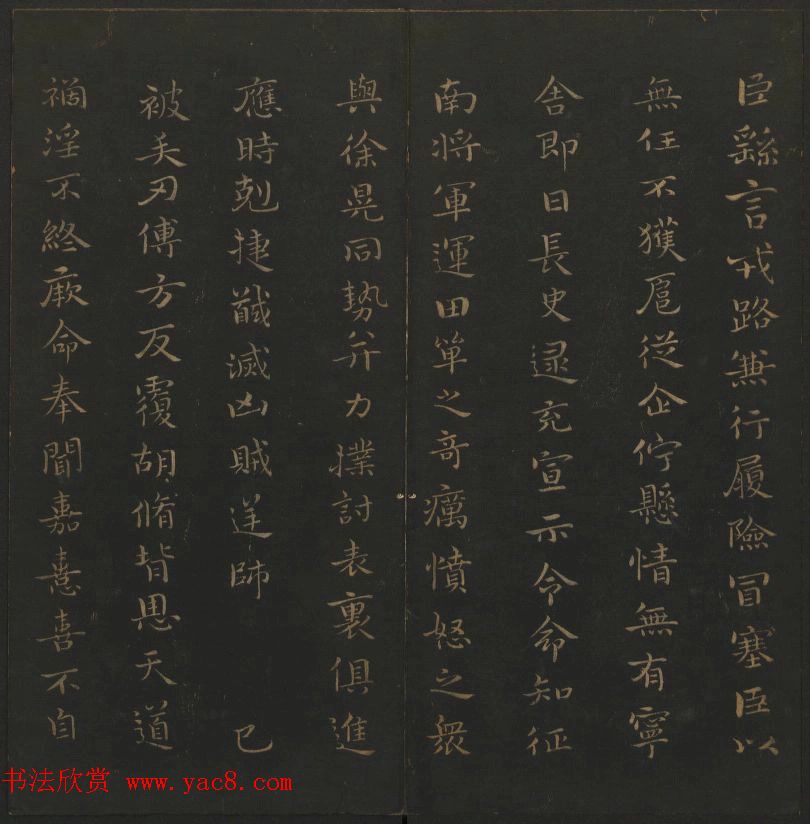 臣繇言戎路兼行履險冒寒臣以
無任不獲扈從企佇懸情無有寧
舍即日長史逯充宣示令命知征
南將軍運田單之奇厲憤怒之衆
與徐晃同勢并力撲討表裏俱進
應時剋捷馘滅凶賊逆帥 已
被矢刃傅方反覆胡脩背恩天道
禍淫不終厥命奉聞嘉憙喜不自
书法欣赏 www.yac8.com